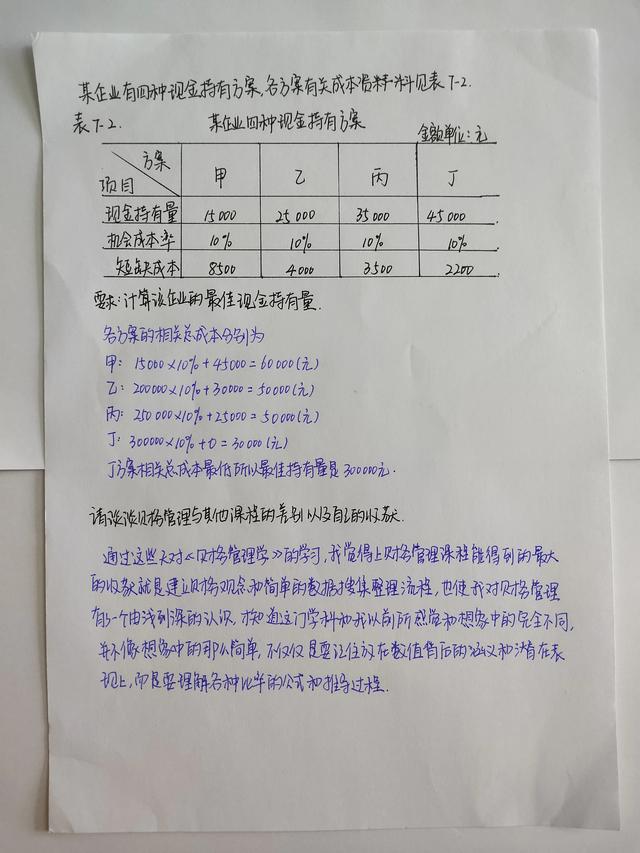 某企业有四种现金持有方案,各方案有关成本资料料见表7-2.
表7-2. 某企业四种现金持有方案 金额单位:元
方案
项目 甲 乙 丙 丁
现金持有量 15000 25000 35000 45000
机会成本率 10% 10% 10% 10%
短缺成本 8500 4000 3500 2200
要求:计算该企业的最佳现金持有量.
各方案的相关总成本分别为
甲: 15000×10%+45000=60000(元)
乙: 200000×10%+30000=50000(元)
丙: 250000×10%+25000=50000(元)
丁: 300000×10%+0=30000(元)
丁方案相关总成本最低所以最佳持有量是300000元.
请谈谈财务管理与其他课程的差别以及自己的收获.
通过这些天对《财务管理学》的学习,我觉得上财务管理课程能得到的最大
的收获就是建立财务观念和简单的数据收集整理流程,也使我对财务管理
有了一个由浅到深的认识,才知道这门学科和我以前所感觉和想象中的完全不同,
并不像想象中的那么简单,不仅仅是要记住放在数值背后的涵义和潜在表
现上,而是要理解各种比率的公式和推导过程.